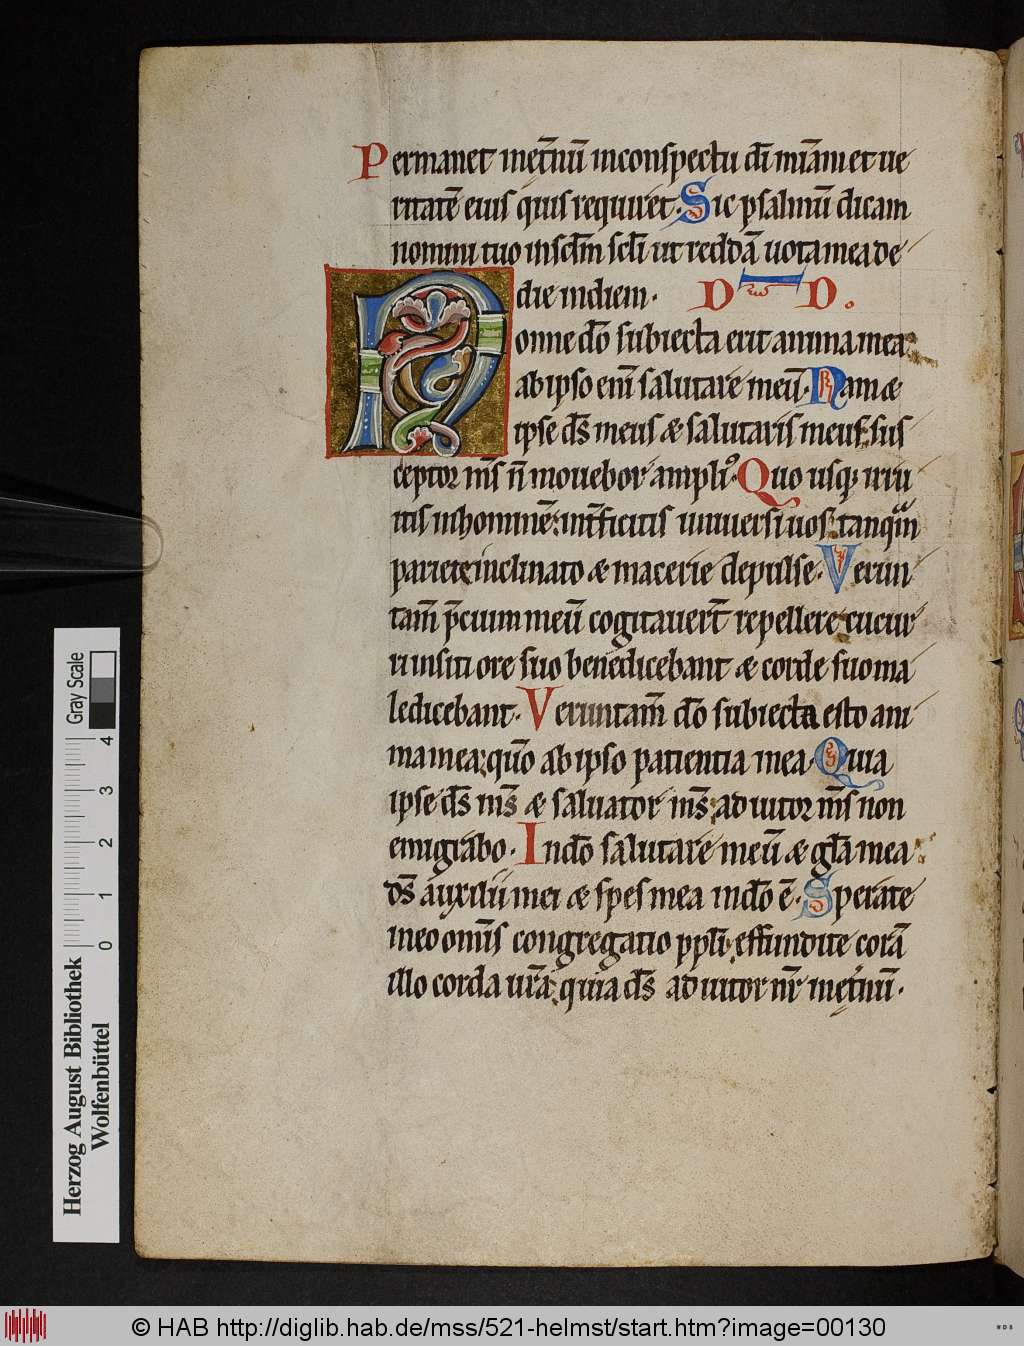 Permanet inet̄nū inconspectu dī mīam et ue
ritatē eius quis requiret. Sic psalmū dicam
nomini tuo insc̄lm sc̄li ut reddā uota mea de
die indiem. D D.
Nonne dō subiecta erit anima mea:
ab ipso enī salutare meū. Nam æ
ipse d̄s meus æ salutaris meus: sus
ceptor m̄s n̄ mouebor ampliꝰ. Quo usq; irru
itis inhominē: int̄ficitis uniuersi uos: tanquā
parieti inclinato æ macerie depulse. Verun
tam̄ p̄cium meū cogitauer̄t repellere cucur
ri insiti ore suo benedicebant æ corde suo ma
ledicebant. Veruntam̄ dō subiecta esto ani
ma mea: qm̄ ab ipso patientia mea. Quia
ipse d̄s m̄s æ saluator m̄s: adiutor m̄s non
emigrabo. Indō salutare meū æ gl̄a mea:
d̄s auxilii mei æ spes mea indō ē. Sperate
ineo omīs congregatio ppl̄i: effundite corā
illo corda ur̄a: quia d̄s adiutor nr̄ inet̄nū.
Gray Scale
0 1 2 3 4
Herzog August Bibliothek
Wolfenbüttel
© HAB http://diglib.hab.de/mss/521-helmst/start.htm?image=00130